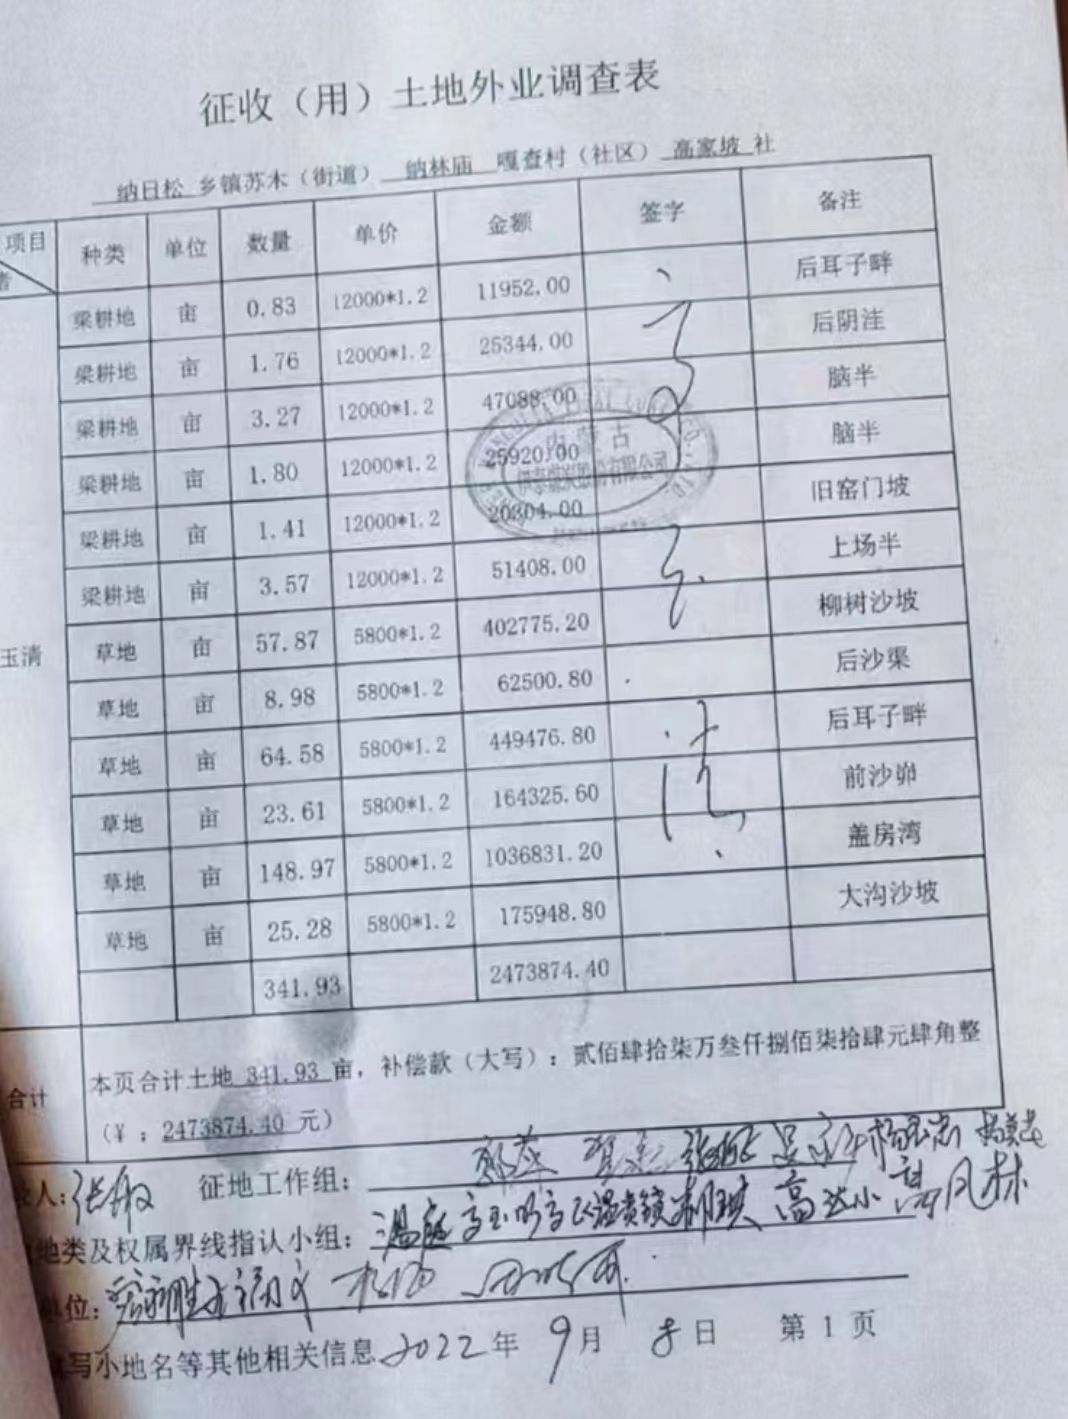 征收（用）土地外业调查表
纳日松 乡镇苏木（街道） 纳林庙 嘎查村（社区） 高家坡 社
项目 种类 单位 数量 单价 金额 签字 备注
者
梁耕地 亩 0.83 12000*1.2 11952.00 后耳子畔
梁耕地 亩 1.76 12000*1.2 25344.00 后阴洼
梁耕地 亩 3.27 12000*1.2 47088.00 脑半
梁耕地 亩 1.80 12000*1.2 25920.00 脑半
梁耕地 亩 1.41 12000*1.2 20304.00 旧窑门坡
梁耕地 亩 3.57 12000*1.2 51408.00 上场半
玉清 草地 亩 57.87 5800*1.2 402775.20 柳树沙坡
草地 亩 8.98 5800*1.2 62500.80 后沙渠
草地 亩 64.58 5800*1.2 449476.80 后耳子畔
草地 亩 23.61 5800*1.2 164325.60 前沙峁
草地 亩 148.97 5800*1.2 1036831.20 盖房湾
草地 亩 25.28 5800*1.2 175948.80 大沟沙坡
341.93 2473874.40
内蒙古
伊泰煤炭股份有限公司
合计 本页合计土地 341.93 亩，补偿款（大写）：贰佰肆拾柒万叁仟捌佰柒拾肆元肆角整
（¥：2473874.40 元）
人：张敏 征地工作组：
地类及权属界线指认小组： 高凤林
单位：
写小地名等其他相关信息 2022年 9月 8日 第 1 页